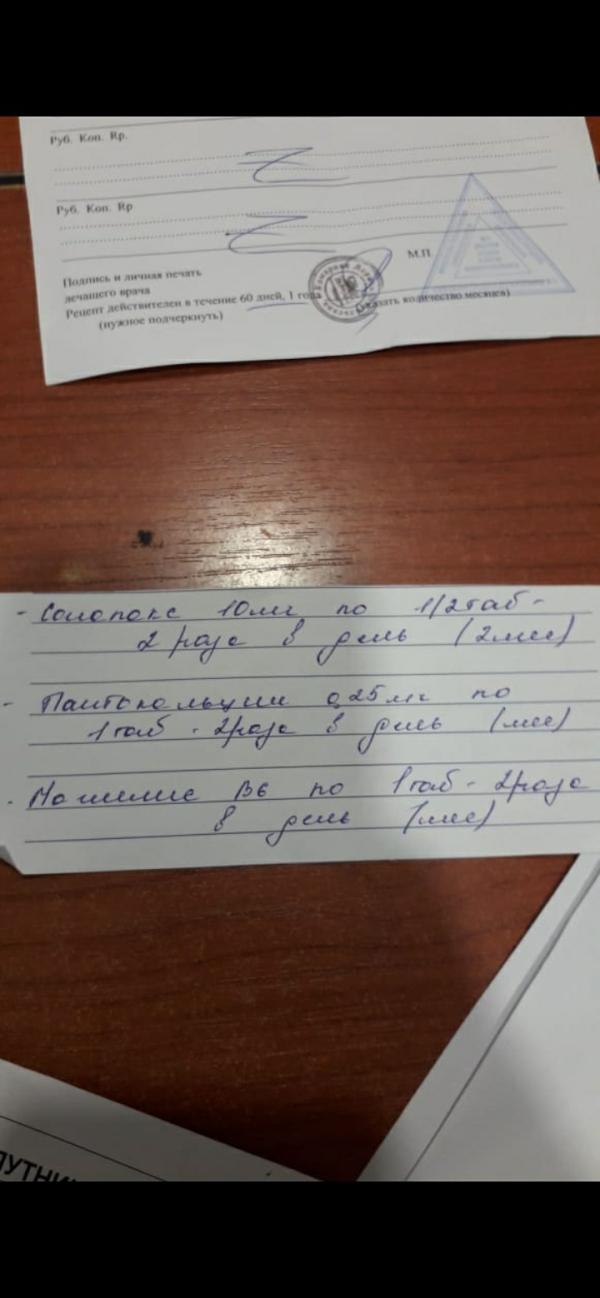 Руб. Коп. Rp.
Руб. Коп. Rp
М.П.
Подпись и личная печать
лечащего врача
Рецепт действителен в течение 60 дней, 1 года (указать количество месяцев)
(нужное подчеркнуть)
- Сонопакс 10мг по 1/2таб-
2 раза в день (2мес)
- Пантокальцин 0,25мг по
1таб - 2раза в день (мес)
- Магнелис В6 по 1таб - 2раза
в день (мес)